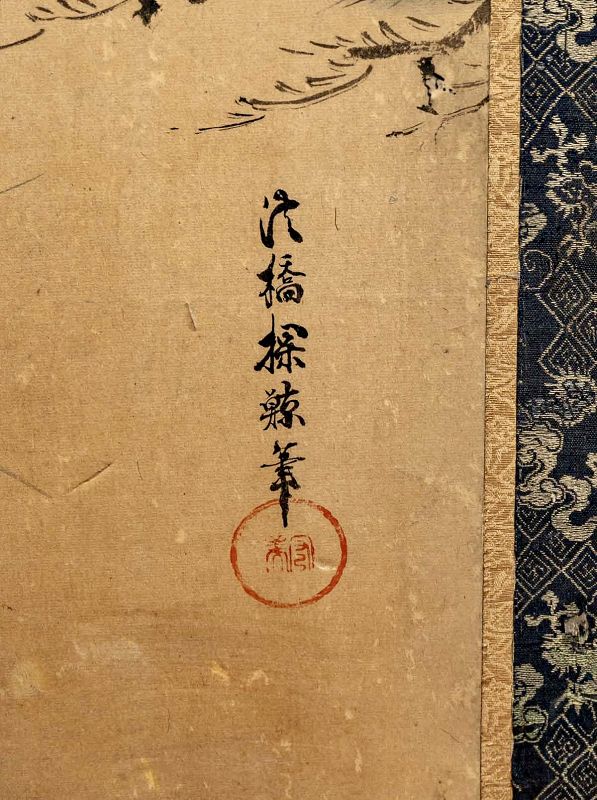 法橋探鯨筆